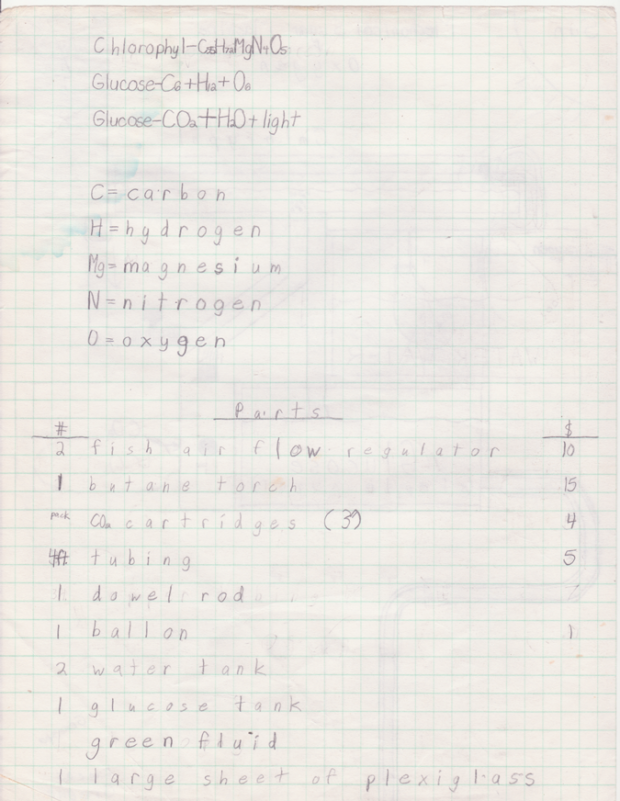 Chlorophyl-C55H72MgN4O5
Glucose-C6+H12+O6
Glucose-CO2+H2O+light
C=carbon
H=hydrogen
Mg=magnesium
N=nitrogen
O=oxygen
Parts
# $
2 fish air flow regulator 10
1 butane torch 15
pack CO2 cartridges (3) 4
4ft tubing 5
1 dowel rod
1 ballon 1
2 water tank
1 glucose tank
green fluid
1 large sheet of plexiglass